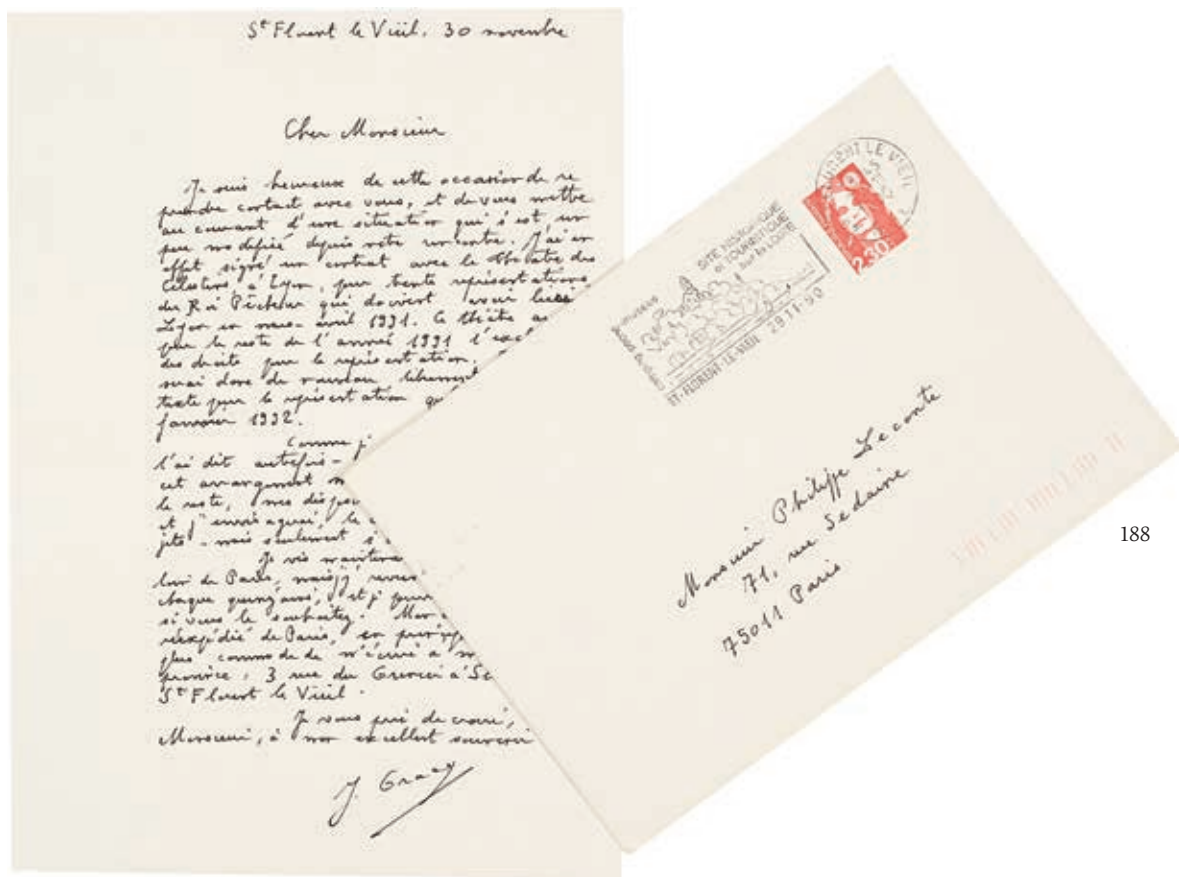 St Florent le Vieil. 30 novembre
Cher Monsieur
Je suis heureux de cette occasion de re
prendre contact avec vous, et de vous mettre
au courant d'une situation qui s'est un
peu modifiée depuis notre rencontre. J'ai en
effet signé un contrat avec le théâtre des
Célestins à Lyon, pour trente représentations
du Roi Pêcheur qui doivent avoir lieu
Lyon en mars-avril 1991. Ce théâtre
pour le reste de l'année 1991 l'excl
des droits pour la représentation.
serai donc de nouveau librement
texte pour la représentation qu
janvier 1992.
Comme j
l'ai dit autrefois -
cet arrangement
le reste, mes dispo
et j'envisagerai, le
jets - mais seulement s
Je vis maintena
loin de Paris, mais j'y
chaque quinzaine, et je pour
si vous le souhaitez. Mon
réexpédié de Paris,
plus commode de m'écrire à m
province, 3 rue du Grenier à Se
St Florent le Vieil.
Je vous prie de croire,
Monsieur, à mon excellent souvenir
J. Gracq
SITE
et TOURISTIQUE
sur la LOIRE
ST-FLORENT-LE-VIEIL
LE VIEIL
2,30
Monsieur Philippe Leconte
71, rue Sedaine
75011 Paris
188